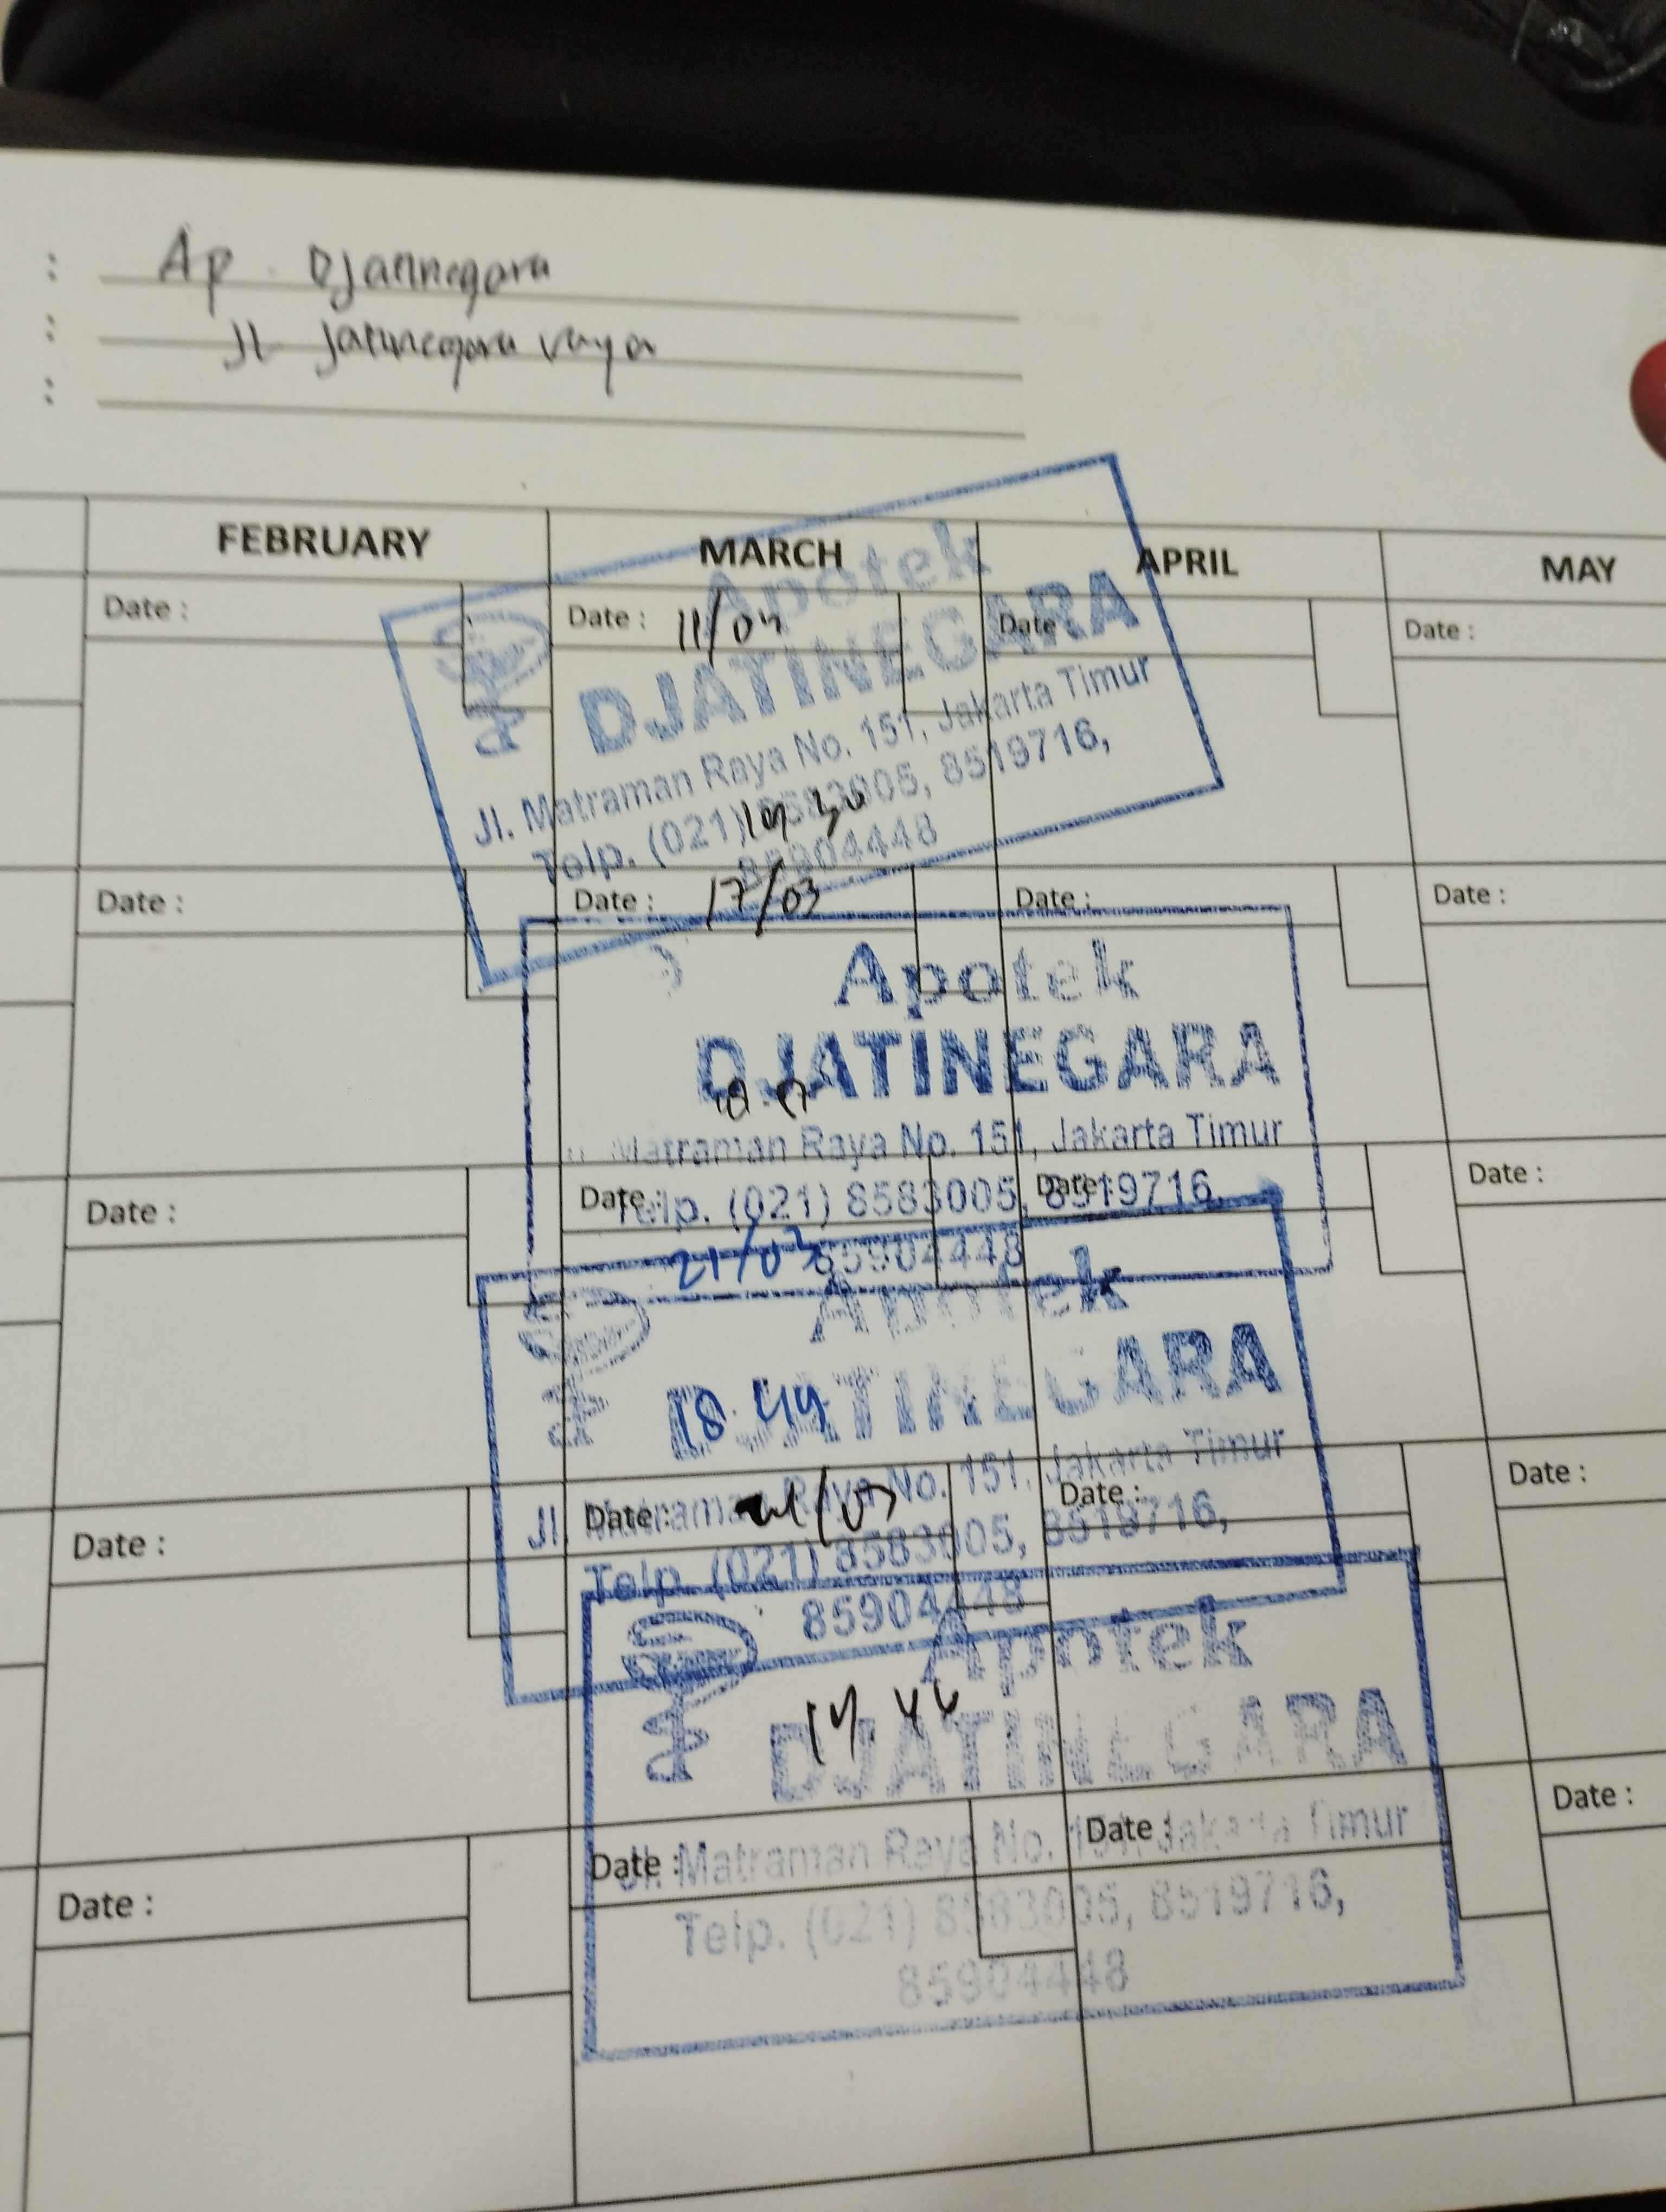 : Ap. Djatinegara
: Jl Jatinegara raya
:
FEBRUARY MARCH APRIL MAY
Date : Date : 11/03 Date Date :
Apotek
DJATINEGARA
Jl. Matraman Raya No. 151, Jakarta Timur
Telp. (021) 8583005, 8519716,
85904448
Date : Date : 17/03 Date : Date :
Apotek
DJATINEGARA
Matraman Raya No. 151, Jakarta Timur
Date : Date : Date : Date :
Telp. (021) 8583005, 8519716,
85904448
21/03
Apotek
DJATINEGARA
18.49
Jl. Matraman Raya No. 151, Jakarta Timur
Date : Date : Date : Date :
Telp. (021) 8583005, 8519716,
85904448
Apotek
DJATINEGARA
Date : Date : Date : Date :
Jl. Matraman Raya No. 151, Jakarta Timur
Telp. (021) 8583005, 8519716,
85904448